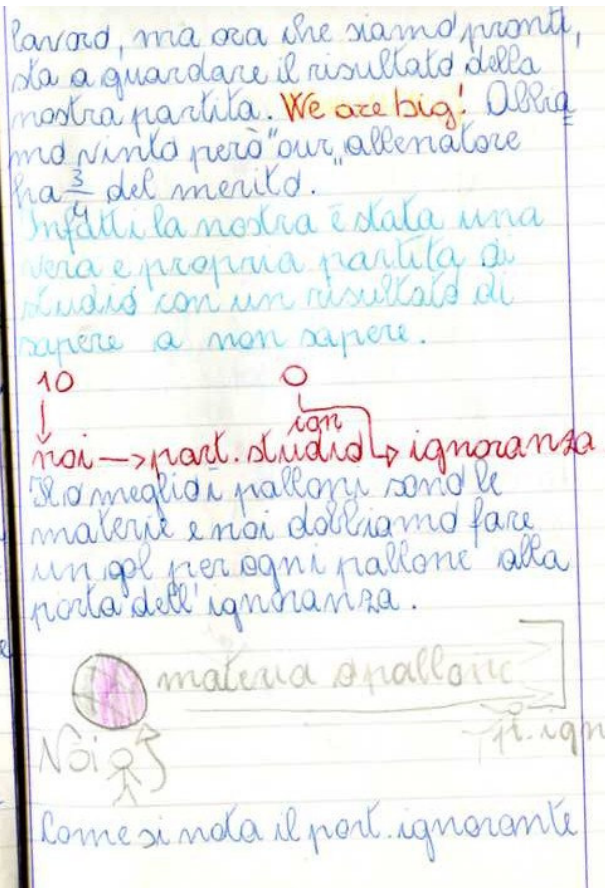 lavoro, ma ora che siamo pronti,
sta a guardare il risultato della
nostra partita. We are big! Abbia
mo vinto però "our" allenatore
ha 3/4 del merito.
Infatti la nostra è stata una
vera e propria partita di
studio con un risultato di
sapere a non sapere.
10 0
ign
noi → part. studio ↳ ignoranza
meglio i palloni sono le
materie e noi dobbiamo fare
un gol per ogni pallone alla
porta dell'ignoranza.
materia o pallone
p. ign
Noi
Come si nota il port. ignorante